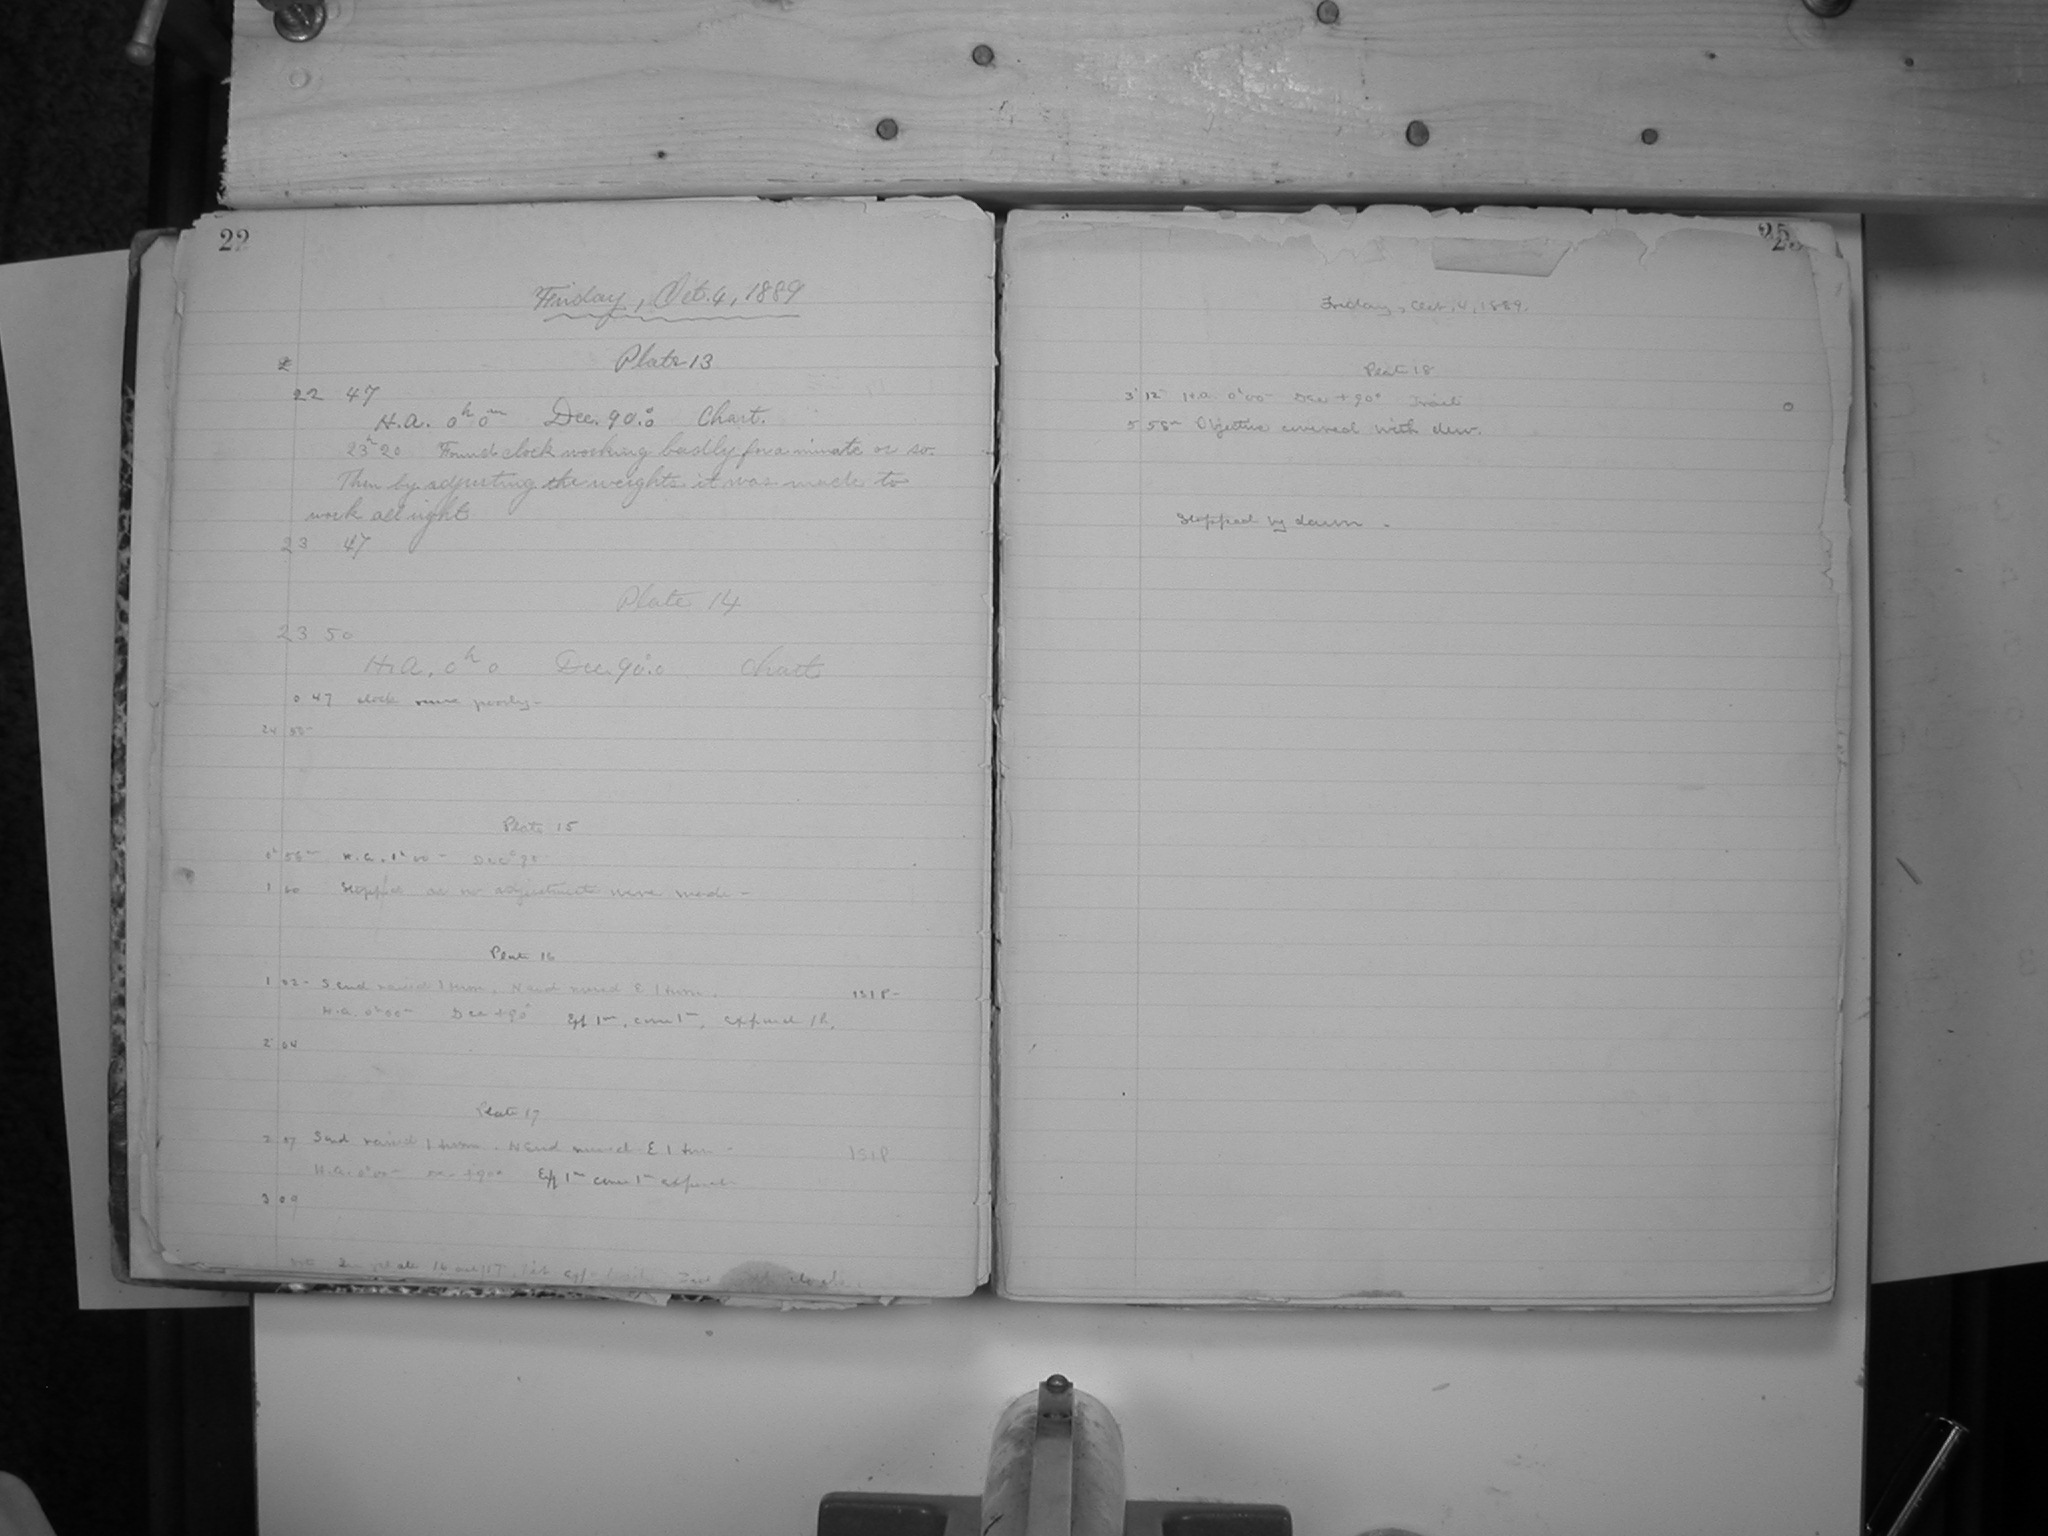 22
Friday, Oct. 4, 1889
Plate 13
22 47
H.A. 0h 0m Dec. 90.°0 Chart.
23h 20 Found clock working badly for a minute or so.
Then by adjusting the weights it was made to
work all right
23 47
Plate 14
23 50
H.A. 0h 0 Dec. 90.°0 Chart
0 47 clock runs poorly-
24 55
Plate 15
0h 56m H.A. 1h 00m Dec° 90
1 00 Stopped as no adjustments were made -
Plate 16
1 02 S end raised 1 turn. N end moved E 1 turn.
H.A. 0h 00m Dec +90° 1m, 1m, exposed 1h.
2 04
Plate 17
2 07 S end raised 1 turn. N end moved E 1 turn
H.A. 0h 00m Dec +90° 1m 1m exposed
3 09
25
Friday, Oct. 4, 1889.
Plate 18
3h 12m H.A. 0h 00m Dec +90° Trail
5 58m Objective covered with dew.
Stopped by dawn.